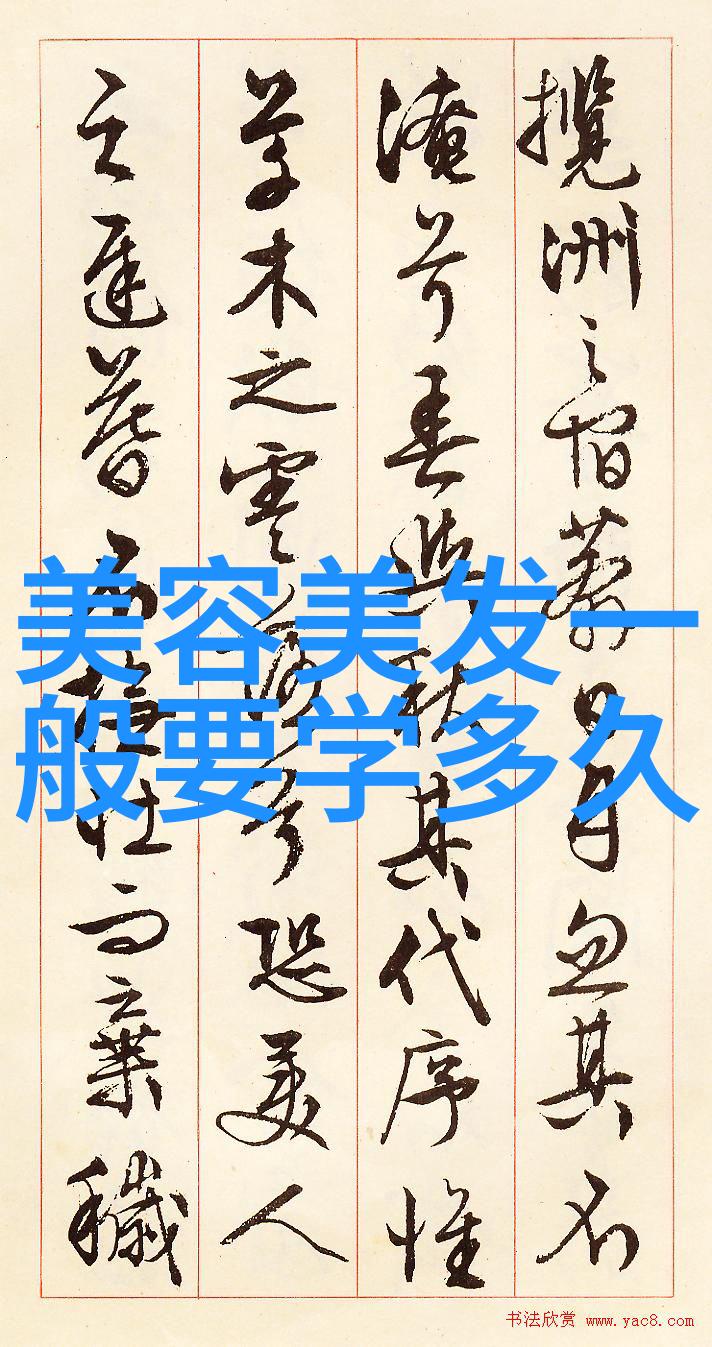 攬洲之宿莽日月忽其不
淹兮春與秋其代序惟
草木之零落兮恐美人
之遲暮撫壯而棄穢
美容美发一
般要学多久
书法欣赏 www.yac8.com